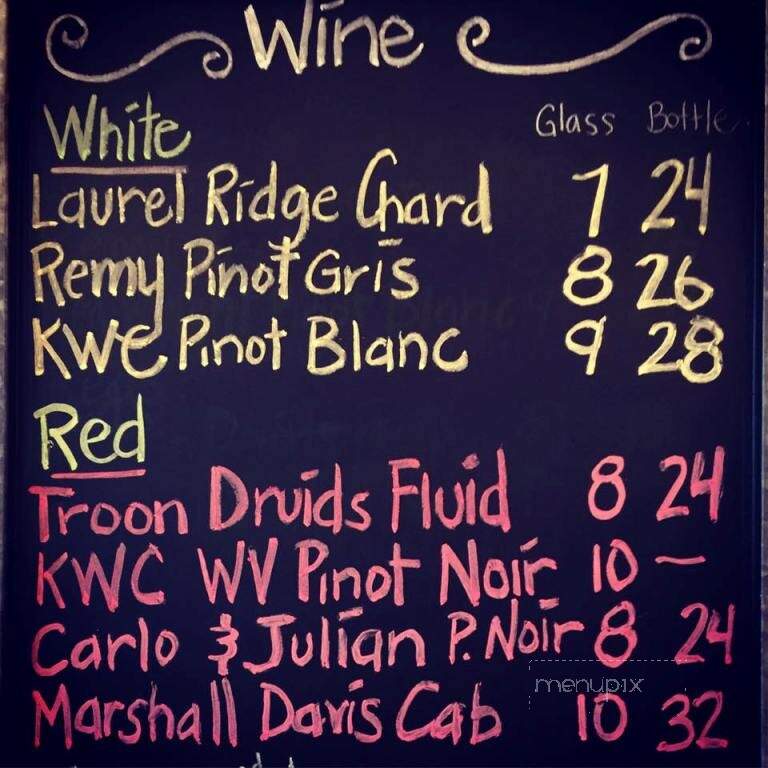 Wine
White Glass Bottle
Laurel Ridge Chard 7 24
Remy Pinot Gris 8 26
KWC Pinot Blanc 9 28
Red
Troon Druids Fluid 8 24
KWC WV Pinot Noir 10 —
Carlo & Julian P. Noir 8 24
menupix
Marshall Davis Cab 10 32